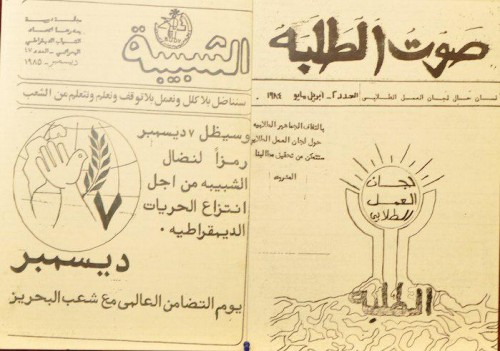 صوت الطلبه
لسان حال لجان العمل الطلابي العدد ٢ - ابريل مايو ١٩٨٤
بالتفاف الجماهير الطلابيه
حول لجان العمل الطلابي
ستتمكن من تحقيق مطالبنا
العشره
لجان
العمل
الطلابي
الطلبه
الشبيبة
ديسمبر - ١٩٨٥
سنناضل بلا كلل ونعمل بلا توقف ونعلم ونتعلم من الشعب
وسيظل ٧ ديسمبر
رمزاً لنضال
الشبيبه من اجل
انتزاع الحريات
الديمقراطيه .
٧
ديسمبر
يوم التضامن العالمى مع شعب البحرين